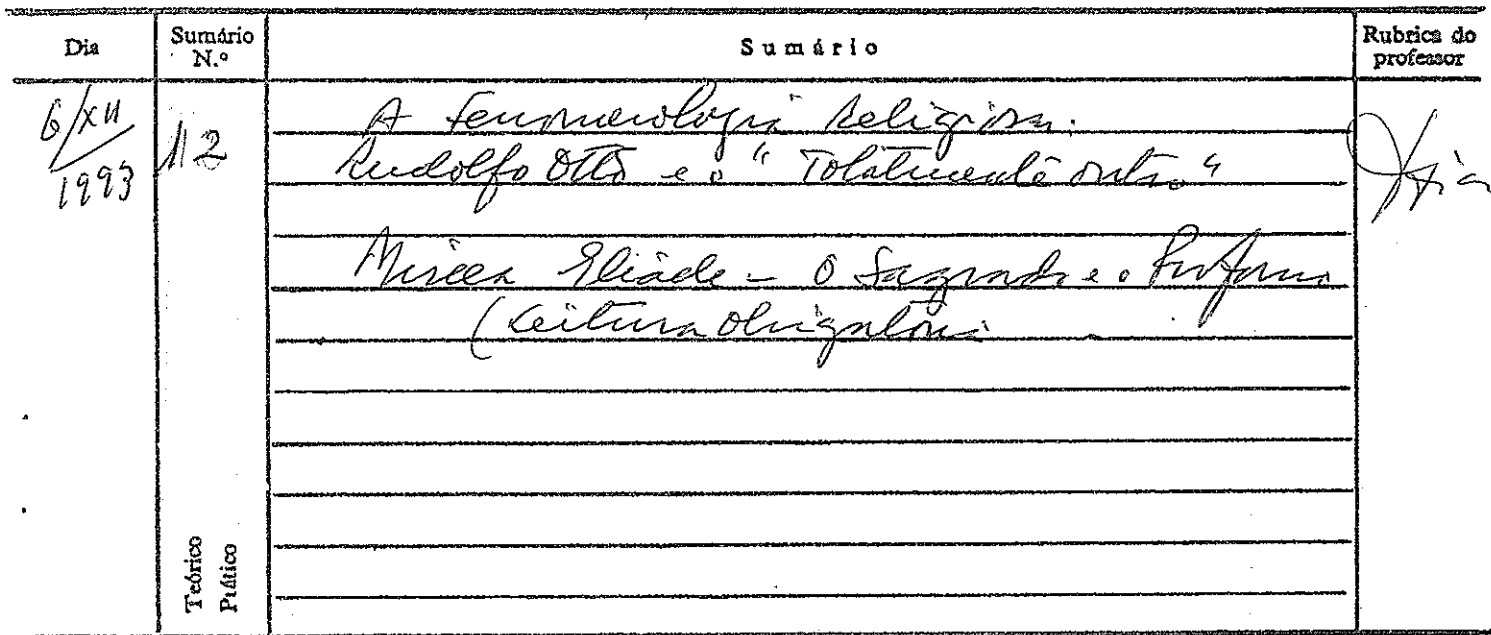 Dia
Sumário N.º
Sumário
Rubrica do professor
6/XII/1993
12
A Fenomenologia Religiosa.
Rudolfo Otto e o "Totalmente outro"
Mircea Eliade - O Sagrado e o Profano
(Leitura obrigatória
Teórico
Prático